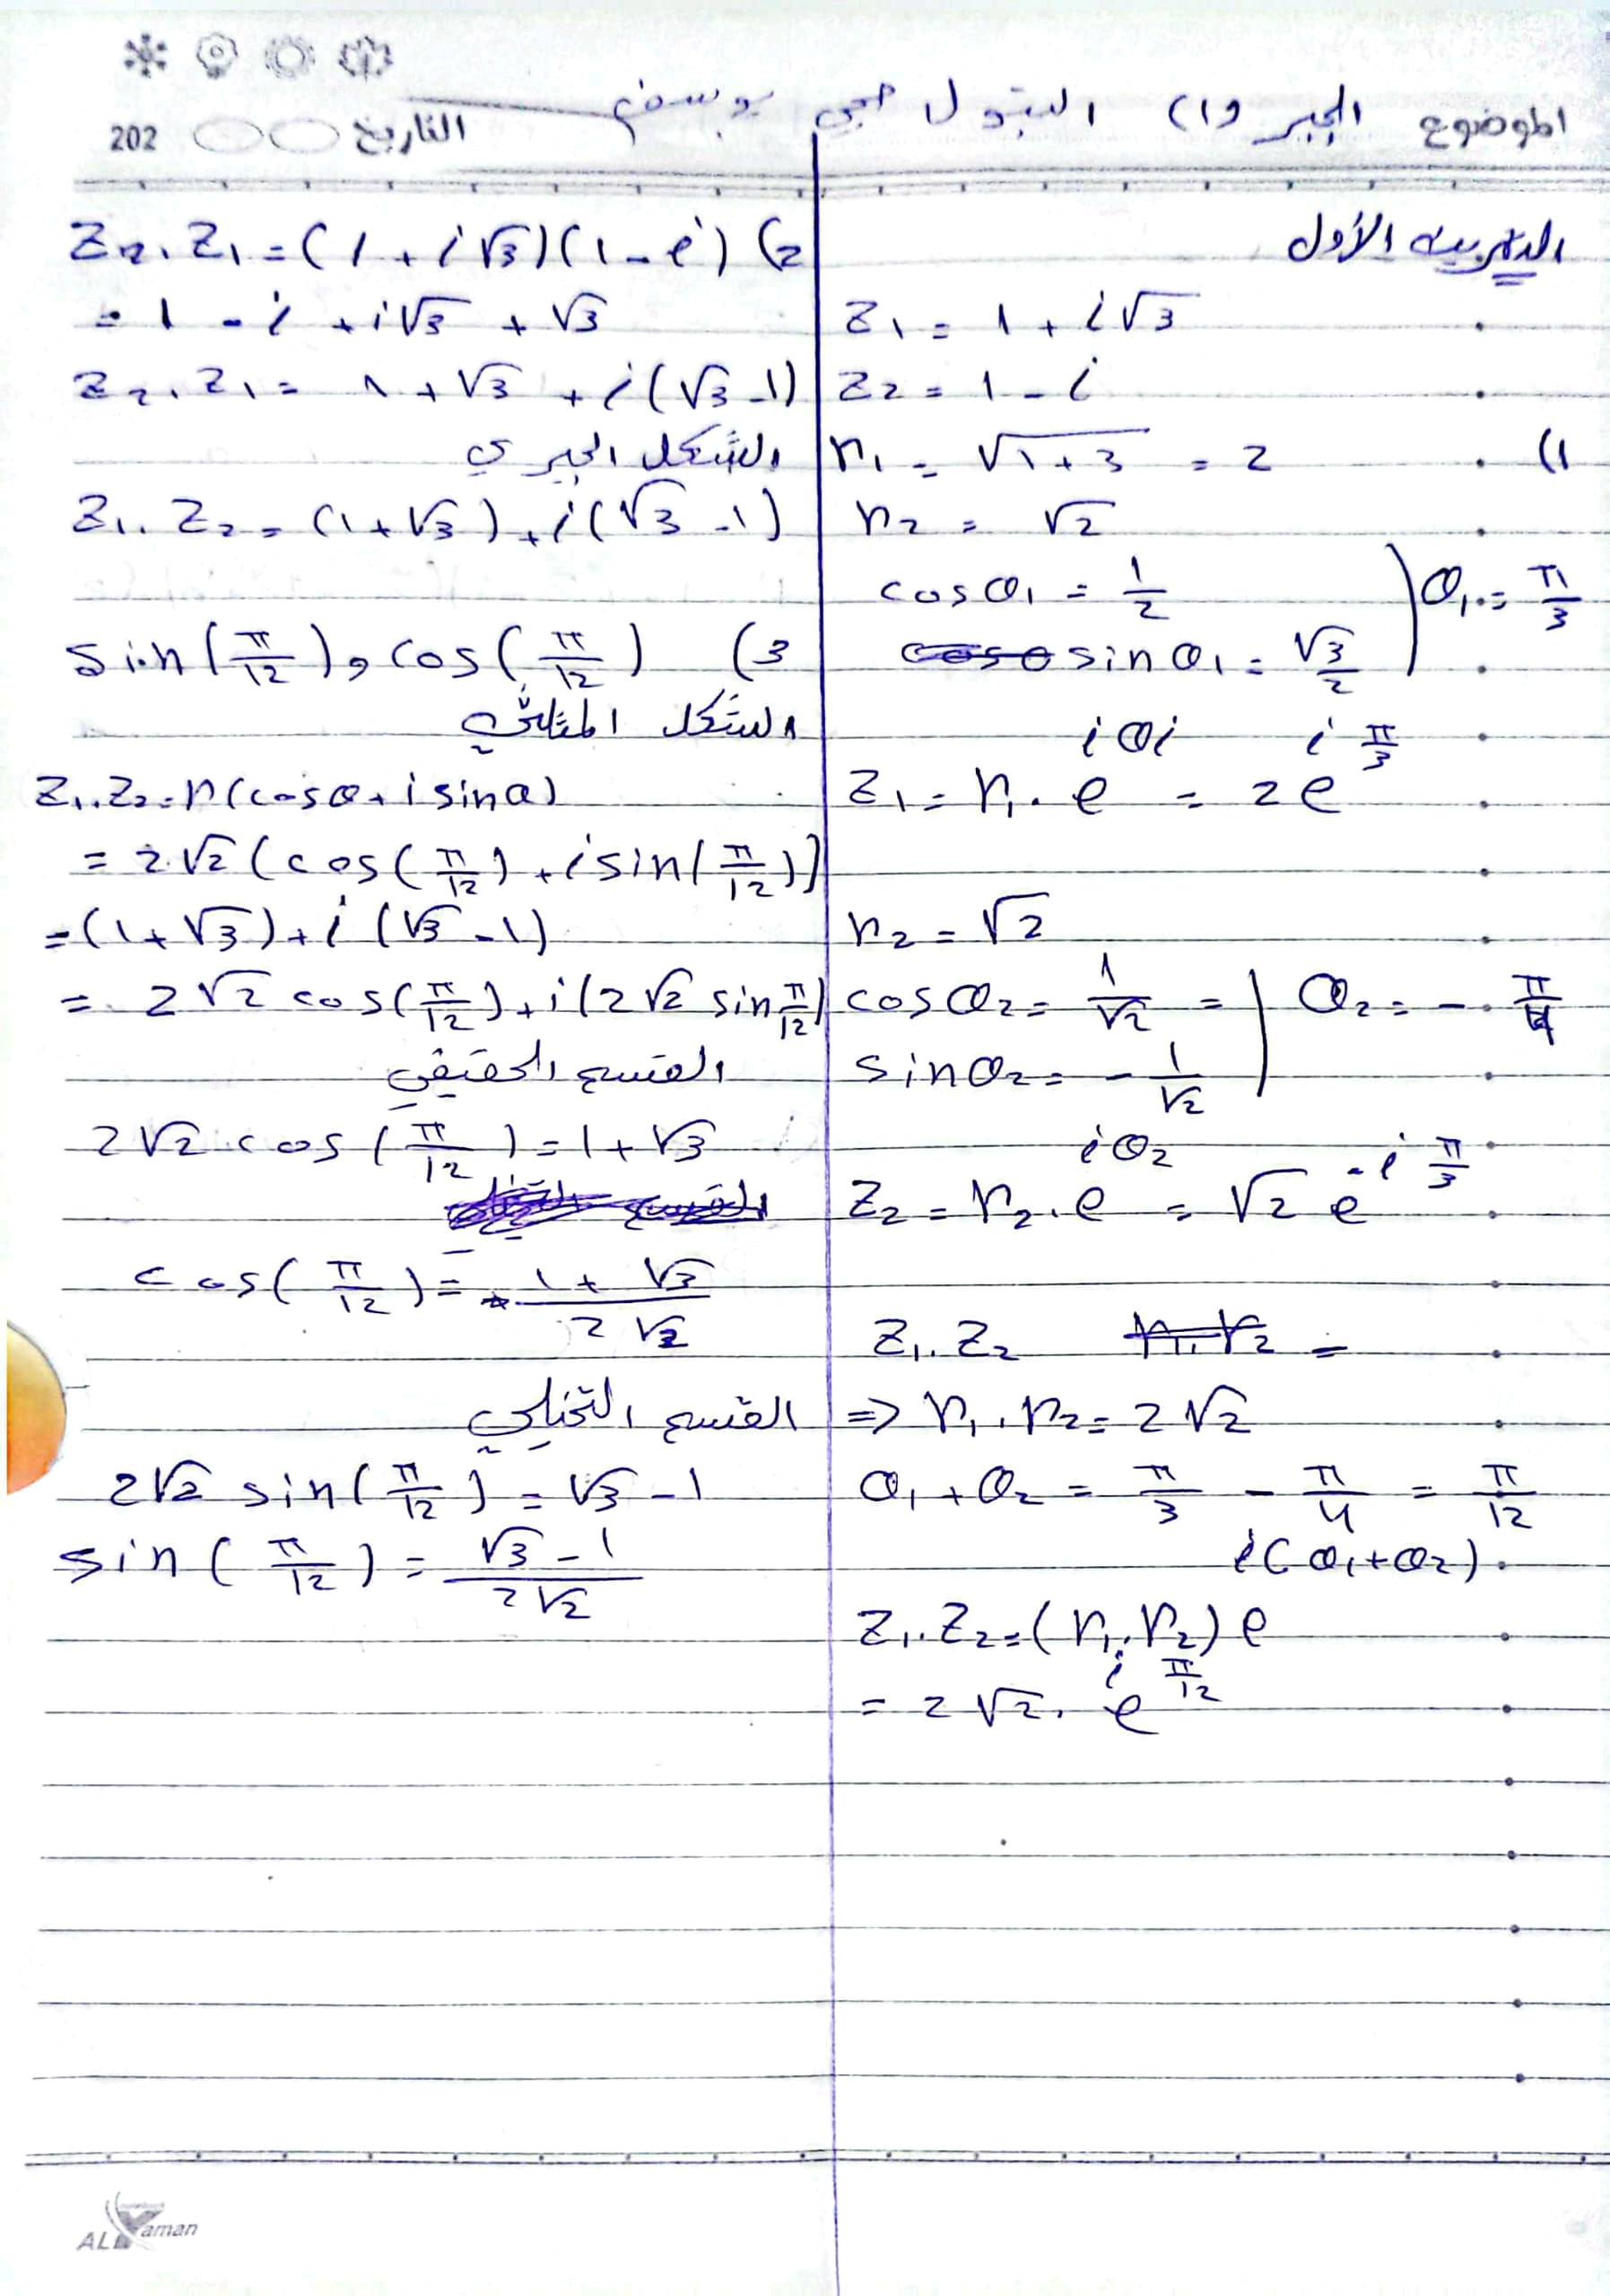 الموضوع الجبر (1) البتول حجي يوسف
التاريخ 202
التمرين الأول
z₁ = 1 + i√3
z₂ = 1 - i
1) r₁ = √1+3 = 2
r₂ = √2
cosθ₁ = 1/2
sinθ₁ = √3/2 | θ₁ = π/3
z₁ = r₁ . e^iθi = 2e^i π/3
r₂ = √2
cosθ₂ = 1/√2 = | θ₂ = - π/4
sinθ₂ = - 1/√2
z₂ = r₂ . e^iθ₂ = √2 e^-i π/3
z₁ . z₂ =
=> r₁ . r₂ = 2√2
θ₁ + θ₂ = π/3 - π/4 = π/12
z₁ . z₂ = (r₁ . r₂) e^i(θ₁+θ₂)
= 2√2 . e^i π/12
2) z₂ . z₁ = (1 + i√3)(1 - i)
= 1 - i + i√3 + √3
z₂ . z₁ = 1 + √3 + i(√3 - 1)
الشكل الجبري
z₁ . z₂ = (1 + √3) + i(√3 - 1)
3) sin(π/12) و cos(π/12)
الشكل المثلثي
z₁ . z₂ = r(cosθ + i sinθ)
= 2√2 (cos(π/12) + i sin(π/12))
= (1 + √3) + i (√3 - 1)
= 2√2 cos(π/12) + i(2√2 sin π/12)
القسم الحقيقي
2√2 cos(π/12) = 1 + √3
cos(π/12) = 1 + √3 / 2√2
القسم التخيلي
2√2 sin(π/12) = √3 - 1
sin(π/12) = √3 - 1 / 2√2
AL Yaman